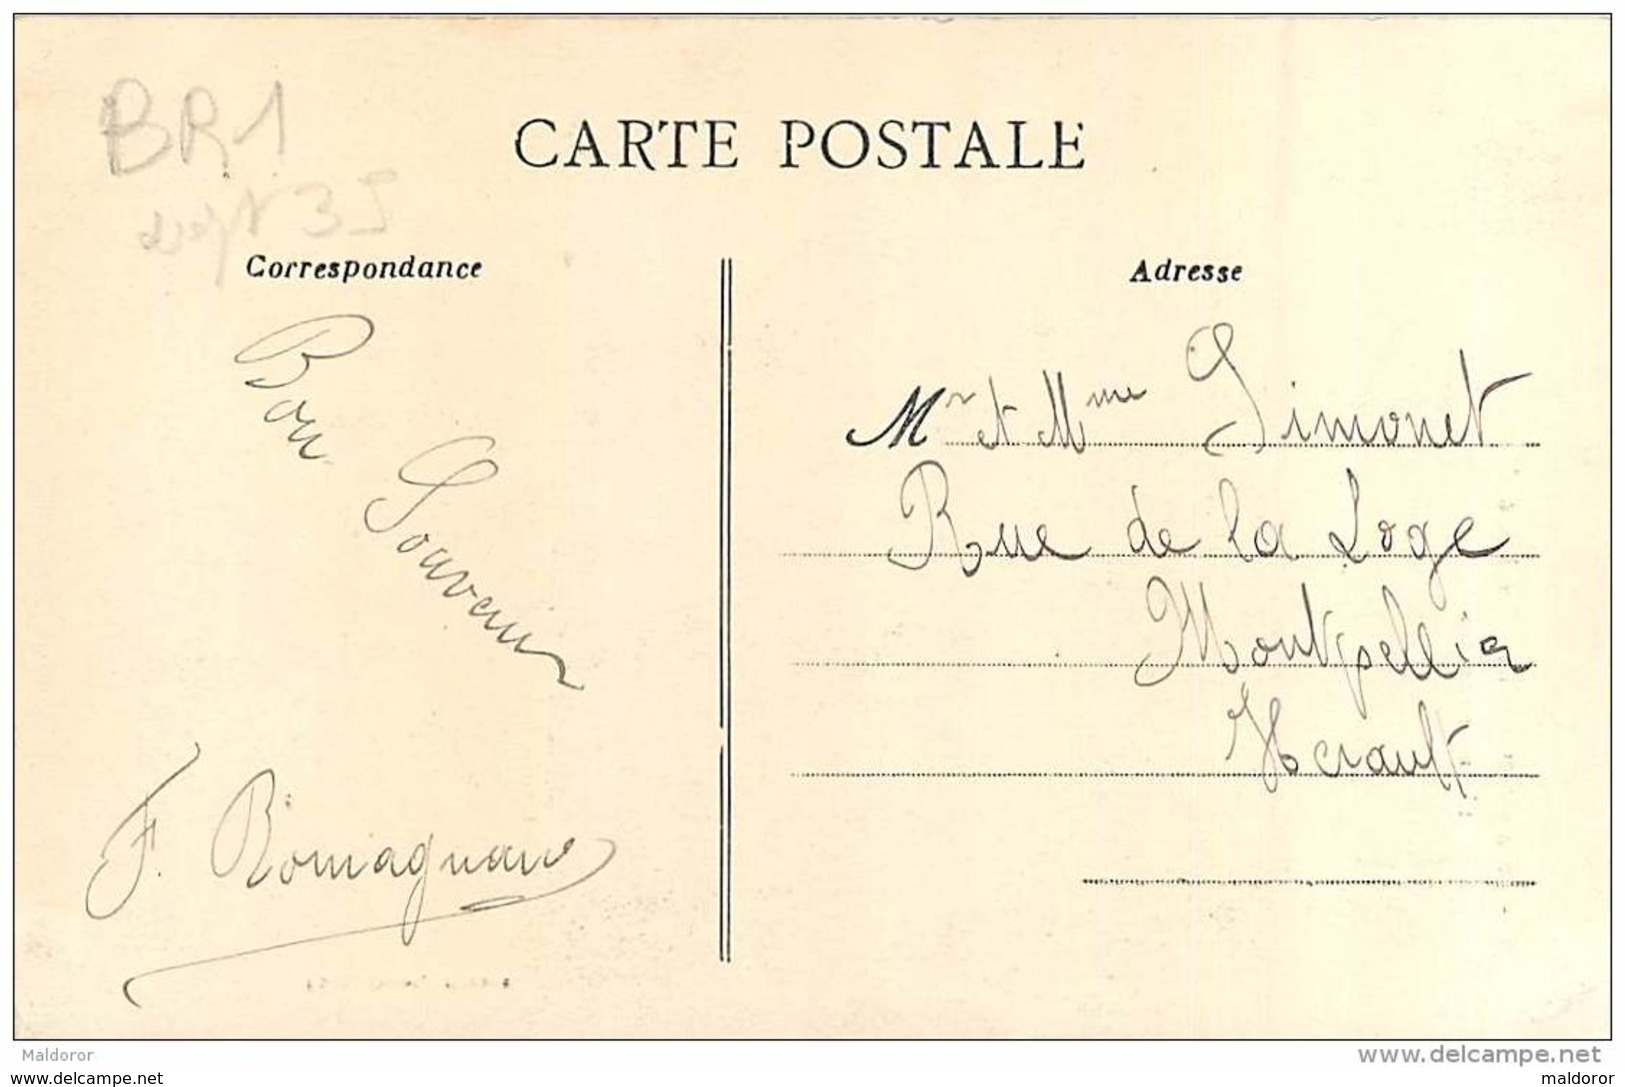 BR1
dept 35
CARTE POSTALE
Correspondance
Adresse
Bon Souvenir
F. Romagnan
Mr et Mme Simonet
Rue de la Loge
Montpellier
Herault
Maldoror
www.delcampe.net
www.delcampe.net
maldoror